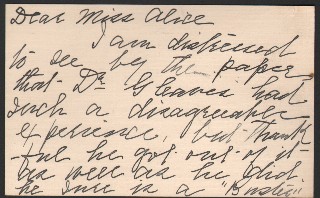 Dear Miss Alice
I am distressed
to see by the paper
that Dr Gleaves had
such a disagreeable
experience, but thank-
ful he got out of it
as well as he did.
he sure is a "Buster"